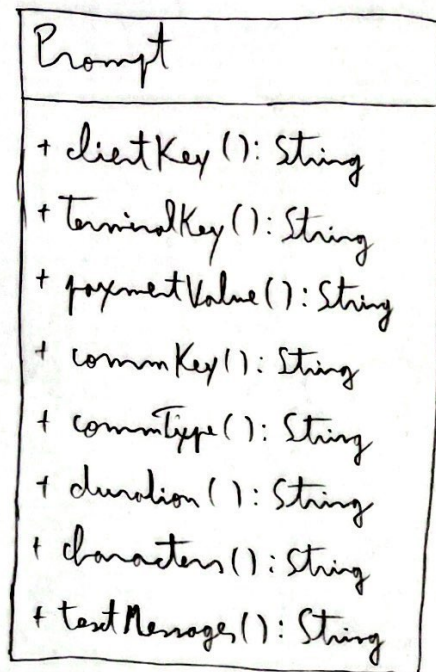 Prompt
+ clientKey(): String
+ terminalKey(): String
+ paymentValue(): String
+ commKey(): String
+ commType(): String
+ duration(): String
+ characters(): String
+ textMessages(): String